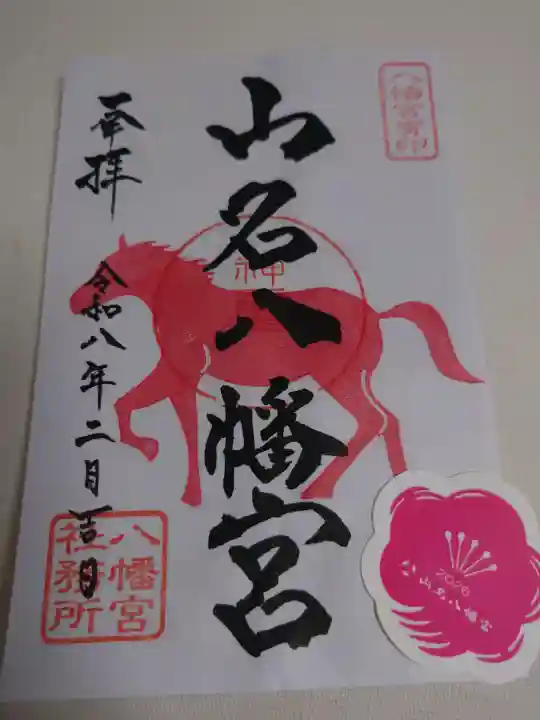 八幡宮寳印
山名八幡宮
神
奉拝
令和八年二月吉日
八幡宮
社務所
2026
山名八幡宮